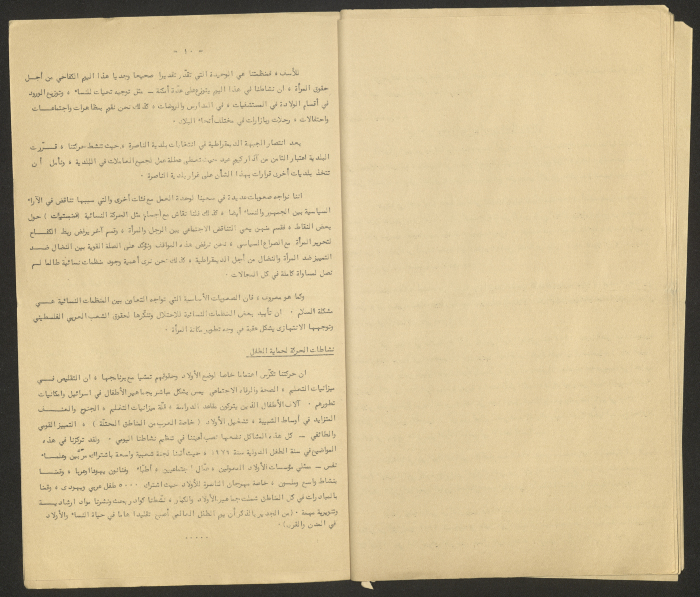 - ١٠ -
للأسف ، فمنظمتنا هي الوحيدة التي تقدّر تقديرا صحيحا وجديا هذا اليوم الكفاحي من أجل
حقوق المرأة ، ان نشاطنا في هذا اليوم يتوزع على عدّة أمكنة - مثل توجيه تحيات للنساء ، وتوزيع الورود
في أقسام الولادة في المستشفيات ، في المدارس والروضات ، كذلك نحن نقيم مظاهرات واجتماعات
واحتفالات ، ورحلات وزيارات في مختلف أنحاء البلاد .
بعد انتصار الجبهة الديمقراطية في انتخابات بلدية الناصرة ، حيث تنشط حركتنا ، قررت
البلدية اعتبار الثامن من آذار كيوم عيد حيث عطلة عمل لجميع العاملات في البلدية ، ونأمل أن
تتخذ بلديات أخرى قرارات بهذا الشأن على غرار بلدية الناصرة .
اننا نواجه صعوبات عديدة في سعينا لوحدة العمل مع فئات أخرى والتي سببها تناقض في الآراء
السياسية بين الجمهور والنساء أيضا ، كذلك لنا نقاش مع أجسام مثل الحركة النسائية ( ) حول
بعض النقاط ، فقسم منهن يرى التناقض الاجتماعي بين الرجل والمرأة ، وقسم آخر يرفض ربط الكفاح
لتحرير المرأة مع الصراع السياسي ، نحن نرفض هذه المواقف ونؤكد على الصلة القوية بين النضال ضد
التمييز ضد المرأة والنضال من أجل الديمقراطية ، كذلك نحن نرى أهمية وجود منظمات نسائية طالما لم
تصل لمساواة كاملة في كل المجالات .
وكما هو معروف ، فان الصعوبات الأساسية التي تواجه التعاون بين المنظمات النسائية هي
مشكلة السلام . ان تأييد بعض المنظمات النسائية للاحتلال وتنكرها لحقوق الشعب العربي الفلسطيني
وتوجهها الانتهازي يشكل عقبة في وجه تطوير مكانة المرأة .
نشاطات الحركة لحماية الطفل
ان حركتنا تكرّس اهتماما خاصا لوضع الأولاد وحقوقهم تمشيا مع برنامجها ، ان التقليص في
ميزانيات التعليم ، الصحة والرفاه الاجتماعي يمس بشكل مباشر بجماهير الأطفال في اسرائيل وامكانيات
تطورهم . آلاف الأطفال الذين يتركون مقاعد الدراسة ، قلّة ميزانيات التعليم ، الجنوح والعنف
المتزايد في أوساط الشبيبة ، تشغيل الأولاد ( خاصة العرب من المناطق المحتلّة ) ، التمييز القومي
والطائفي - كل هذه المشاكل نضعها نصب أعيننا في تنظيم نشاطنا اليومي . ولقد تركزنا في هذه
المواضيع في سنة الطفل الدولية سنة ١٩٧٩ ، حيث أقمنا لجنة شعبية واسعة باشتراك مربّين وعلماء
نفس - ممثلي مؤسسات الأولاد المعوقين ، عمّال اجتماعيين ، أطباء وفنانين يهودا وعربا ، وقمنا
بنشاط واسع ، خاصة مهرجان الناصرة للأولاد حيث اشترك ٥٠٠٠ طفل عربي ويهودي ، وقمنا
بالمبادرات في كل المناطق شملت جماهير الأولاد والكبار ، نظّمنا كوادر بحث ونشرنا مواد ارشادية
وتنويرية مهمة . ( من الجدير بالذكر أن يوم الطفل العالمي أصبح تقليدا هاما في حياة النساء والأولاد
في المدن والقرى ) .
. . . . .